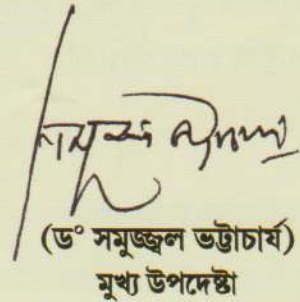 (ড° সমুজ্জ্বল ভট্টাচাৰ্য)
মুখ্য উপদেষ্টা